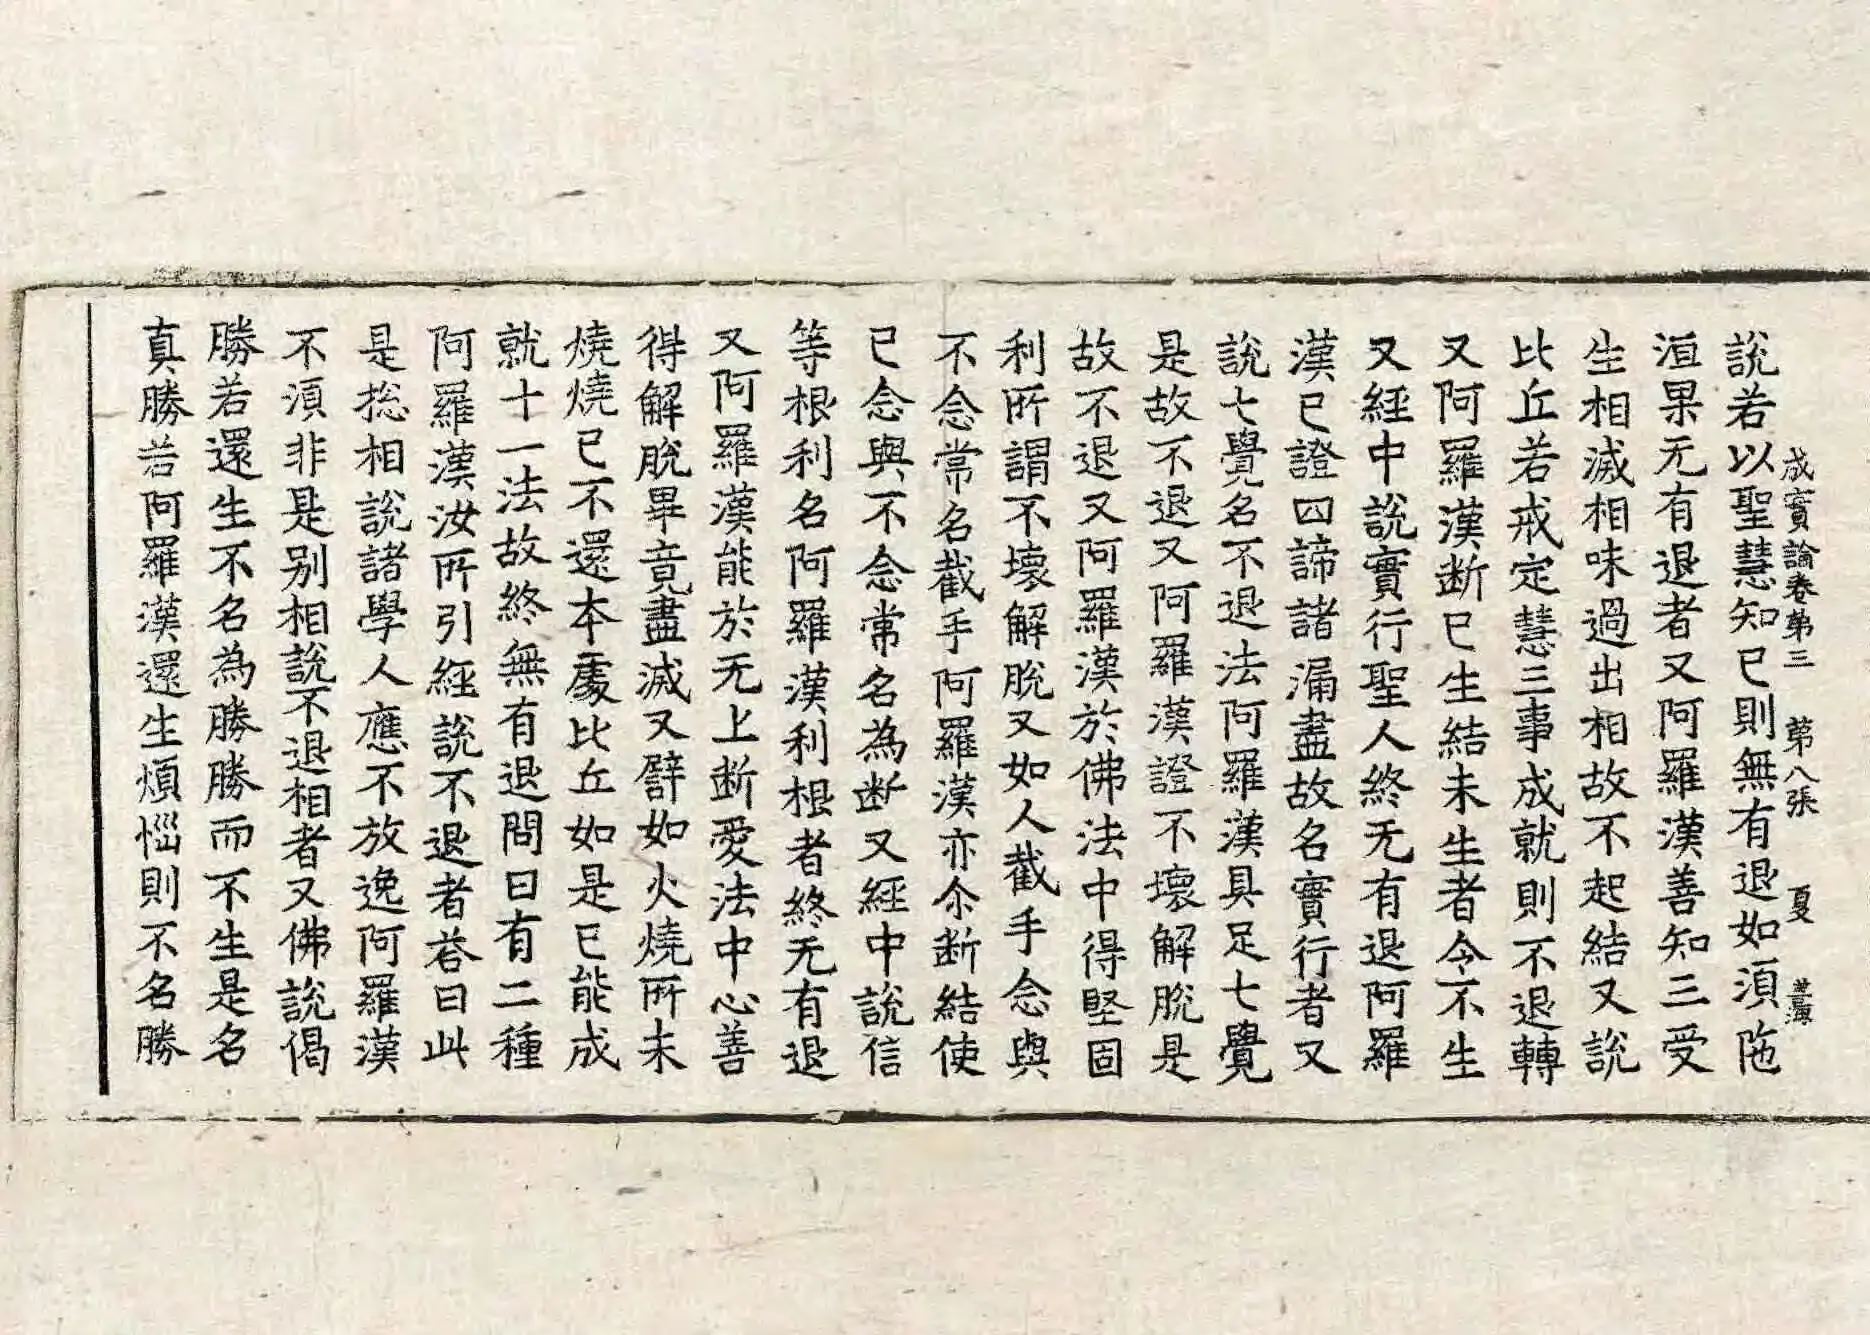 成實論卷第三 第八張 夏
說若以聖慧知已則無有退如湏陁
洹果无有退者又阿羅漢善知三受
生相滅相味過出相故不起結又說
比丘若戒定慧三事成就則不退轉
又阿羅漢断已生結未生者令不生
又經中說實行聖人終无有退阿羅
漢已證四諦諸漏盡故名實行者又
說七覺名不退法阿羅漢具足七覺
是故不退又阿羅漢證不壞解脫是
故不退又阿羅漢於佛法中得堅固
利所謂不壞解脫又如人截手念與
不念常名截手阿羅漢亦尒断結使
已念與不念常名為断又經中說信
等根利名阿羅漢利根者終无有退
又阿羅漢能於无上断愛法中心善
得解脫畢竟盡滅又譬如火燒所未
燒燒已不還本處比丘如是已能成
就十一法故終無有退問曰有二種
阿羅漢汝所引經說不退者荅曰此
是捴相說諸學人應不放逸阿羅漢
不湏非是別相說不退相者又佛說偈
勝若還生不名為勝勝而不生是名
真勝若阿羅漢還生煩惱則不名勝